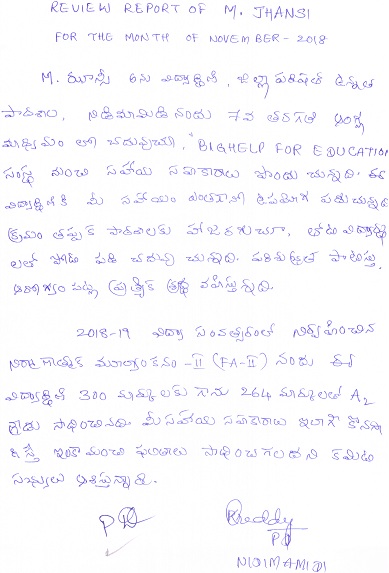 REVIEW REPORT OF M. JHANSI
FOR THE MONTH OF NOVEMBER - 2018
M. ఝాన్సీ అను విద్యార్థిని, జిల్లా పరిషత్ ఉన్నత
పాఠశాల, నిడిమామిడి నందు 7వ తరగతి ఆంగ్ల
మాధ్యమం లో చదువుచూ, "BIGHELP FOR EDUCATION
సంస్థ నుంచి సహాయ సహకారాలు పొందు చున్నది. ఈ
విద్యార్థినికి మీ సహాయం ఎంతగానో ఉపయోగ పడుచున్నది
క్రమం తప్పక పాఠశాలకు హాజరగుచూ, తోటి విద్యార్థి
లతో పోటీ పడి చదువు చున్నది. పరిశుభ్రత పాటిస్తూ,
ఆరోగ్యం పట్ల ప్రత్యేక శ్రద్ధ వహిస్తున్నది.
2018-19 విద్యా సంవత్సరంలో నిర్వహించిన
నిర్మాణాత్మక మూల్యాంకనం - II (FA-II) నందు ఈ
విద్యార్థిని 300 మార్కులకు గాను 264 మార్కులతో A2
గ్రేడు సాధించినది. మీ సహాయ సహకారాలు ఇలాగే కొనసా
గిస్తే ఇంకా మంచి ఫలితాలు సాధించగలదని కమిటి
సభ్యులు ఆశిస్తున్నారు.
Rreddy
PD
NIDIMAMIDI